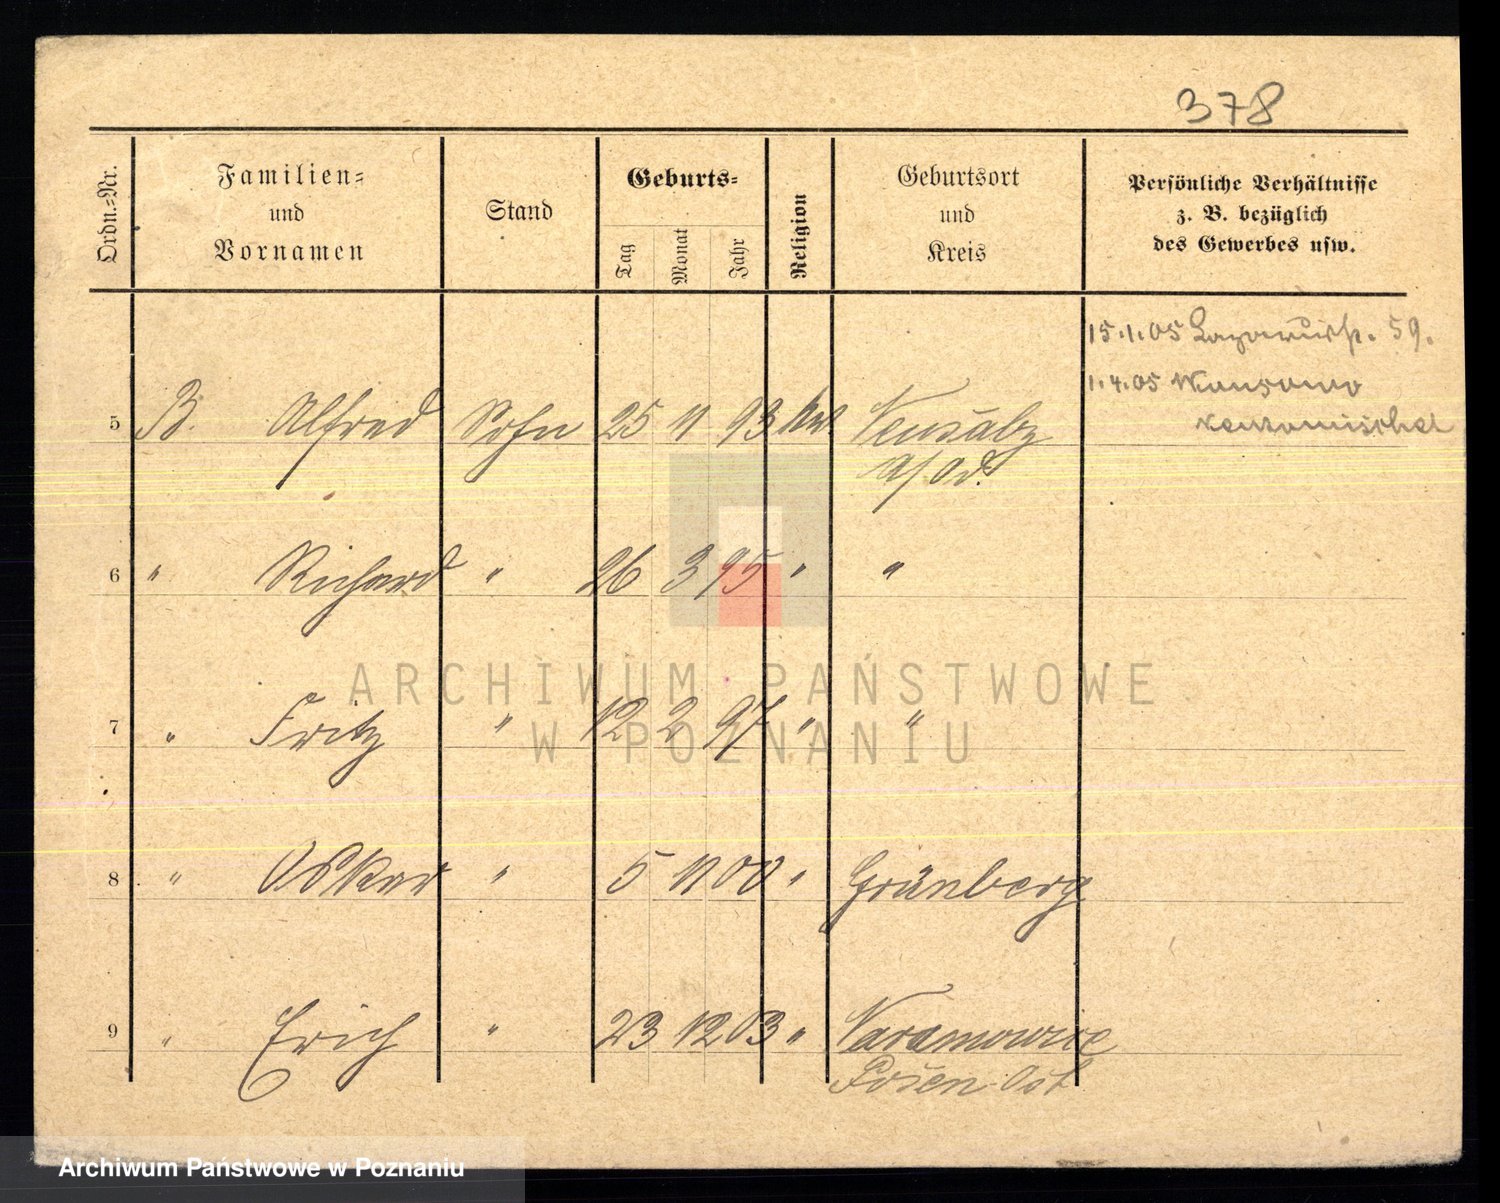 378
Ordn.-Nr. Familien- und Vornamen Stand Geburts- Tag Monat Jahr Religion Geburtsort und Kreis Persönliche Verhältnisse z. B. bezüglich des Gewerbes usw.
15.1.05 Lazarusstr. 59.
1.4.05
5 B. Alfred Sohn 25 11 93 Neusalz
a/Od.
6 " Richard " 26 3 95 " "
7 " Fritz " 12 2 97 " "
8 " Oskar " 5 11 00 " Grünberg
9 " Erich " 23 12 03 " Naramowice
Posen-Ost
ARCHIWUM PAŃSTWOWE
W POZNANIU
Archiwum Państwowe w Poznaniu